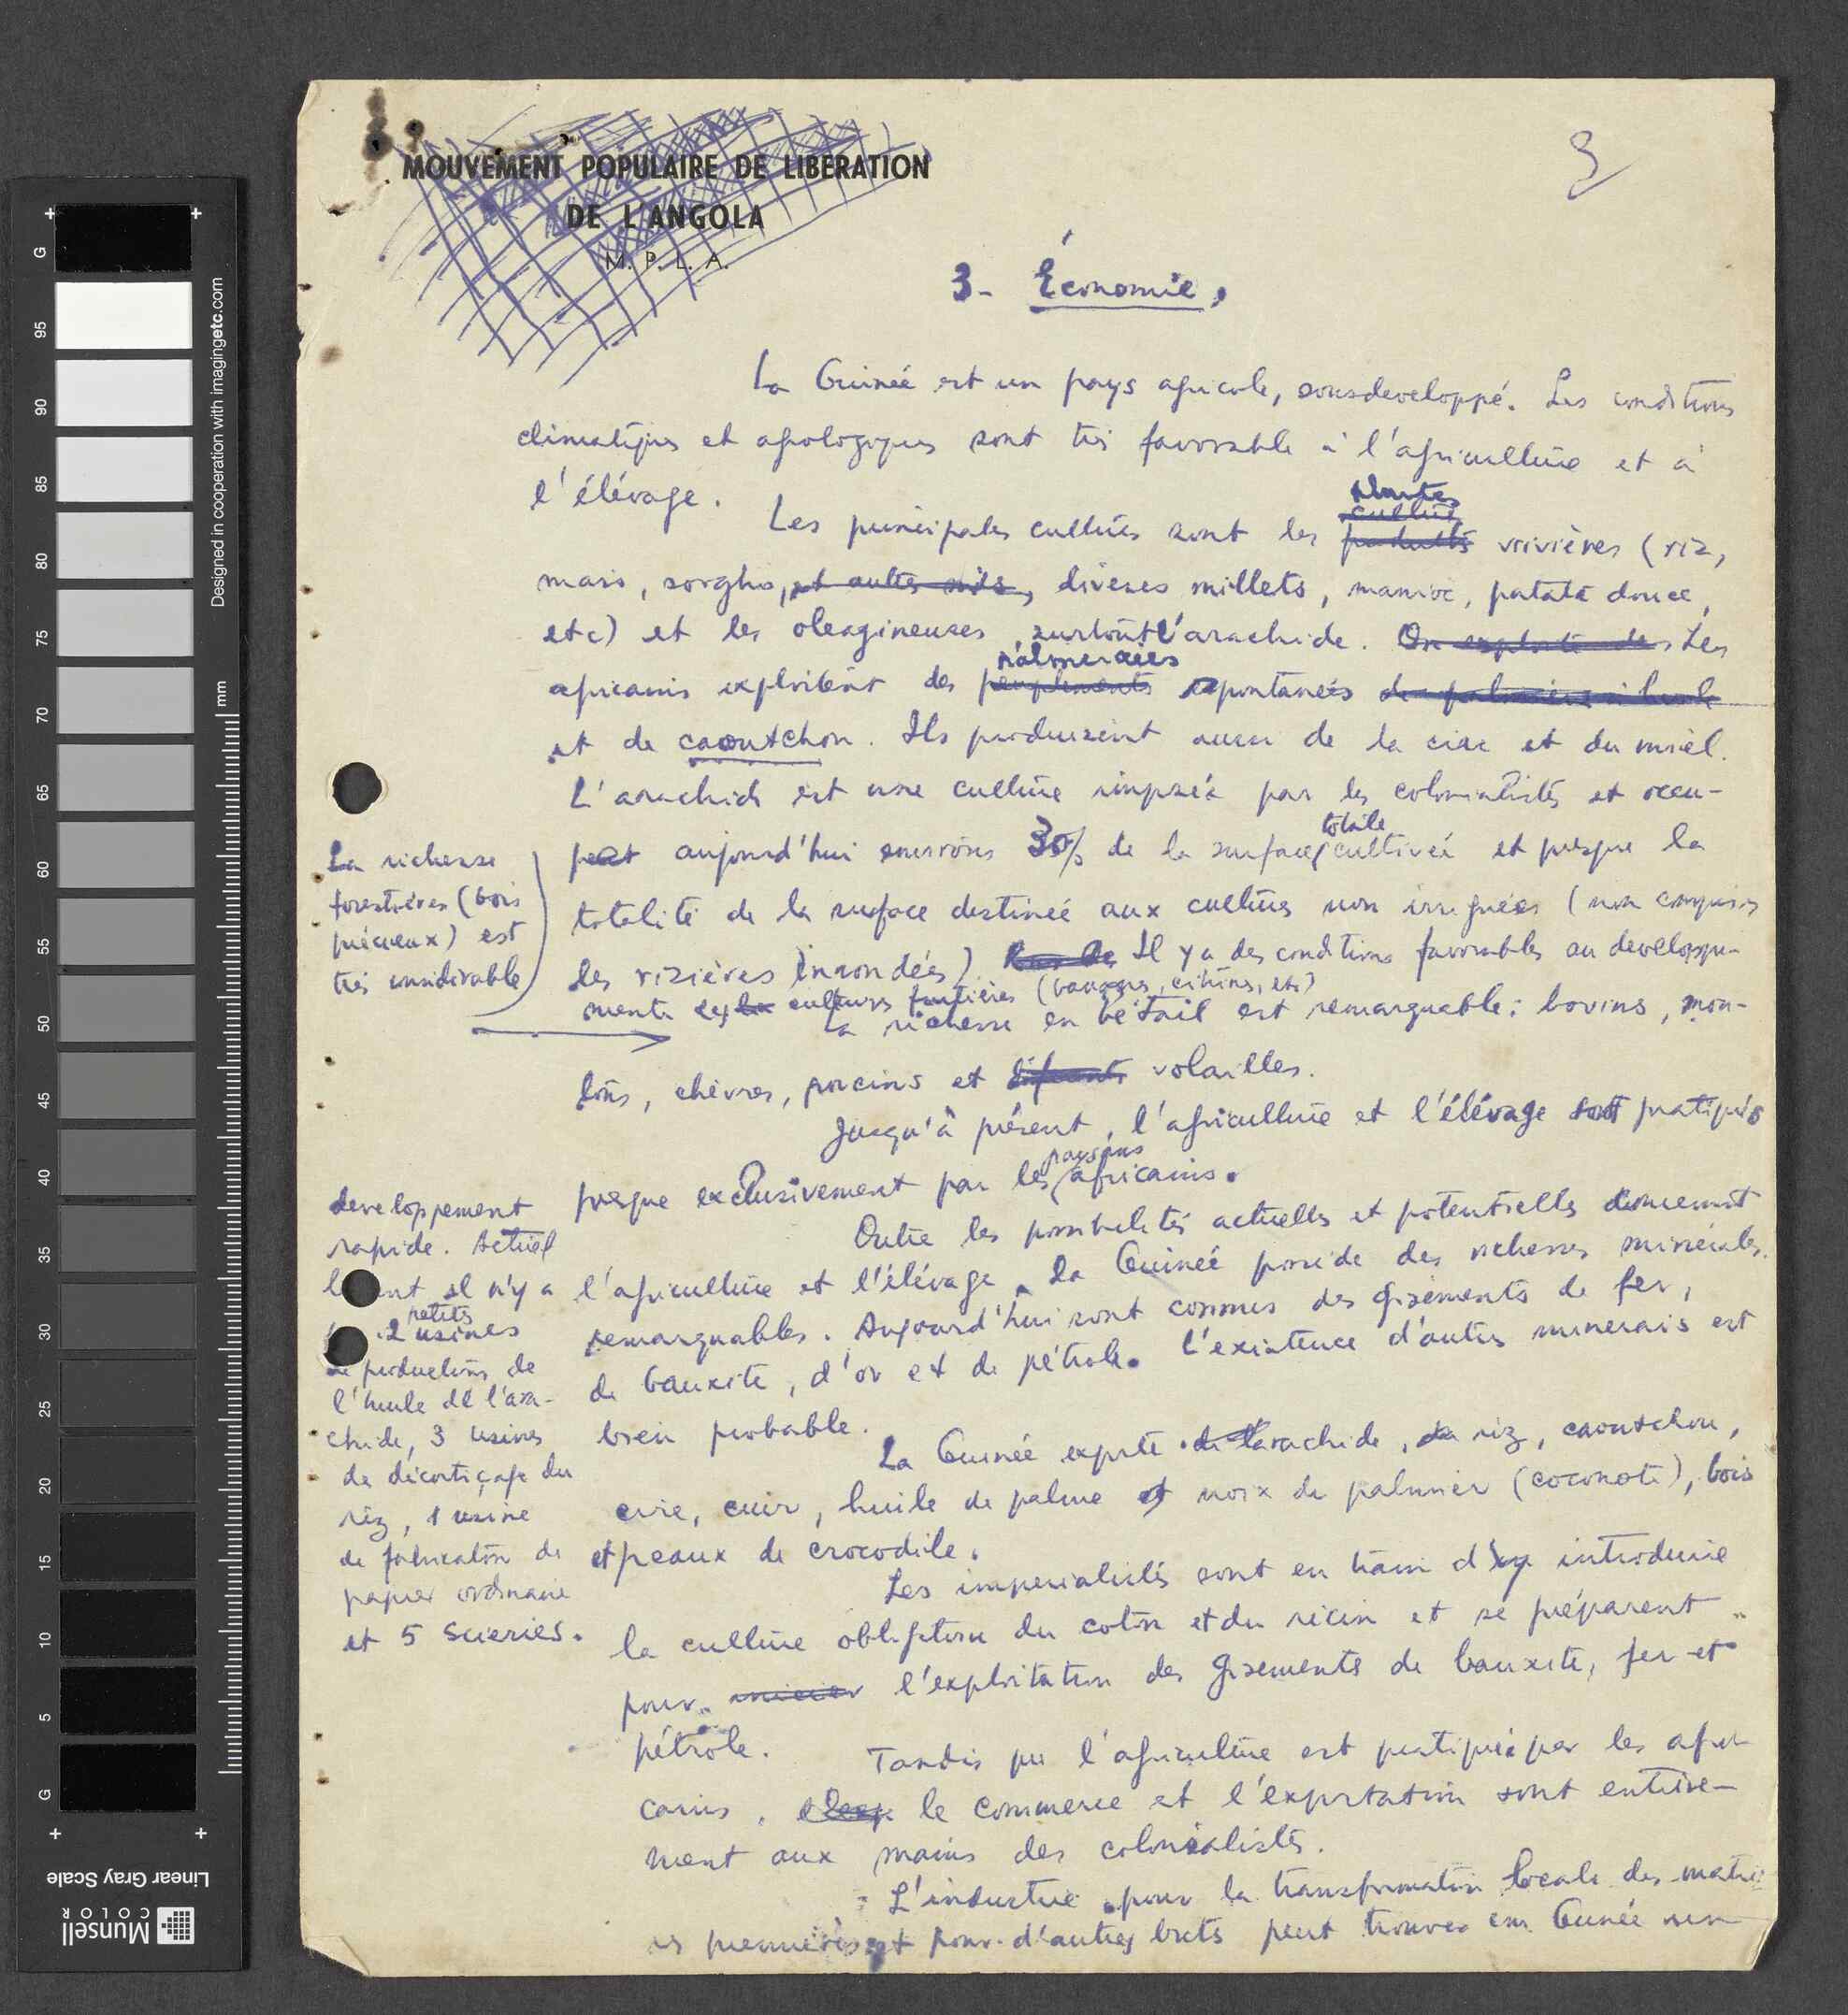 MOUVEMENT POPULAIRE DE LIBERATION
DE L'ANGOLA
M. P. L. A.
3
3- Économie,
La Guinée est un pays agricole, sousdeveloppé. Les conditions
climatiques et agologiques sont très favorable à l'agriculture et à
l'élévage. Les principales cultures sont les
plantes
culture
produits vivières (riz,
mais, sorgho, et autres mils, diverses millets, manioc, patate douce,
etc) et les oleagineuses, surtout l'arachide. On exploite des Les
palmeraies
africains exploitent des peuplements spontanées de palmiers à huile
et de caoutchou. Ils produisent aussi de la cire et du miel.
L'arachide est une culture imposée par les colonialistes et occu-
totale
pent aujourd'hui environs 30% de la surface cultivée et presque la
totalité de la surface destinée aux cultures non irriguées (non compris
les rizières inondées). Il y a des conditions favorables au developpe-
ments cultures fruitières (bananes, citrins, etc)
La richesse forestières (bois
précieux) est
très considérable
La richesse en bétail est remarquable: bovins, mou-
tons, chèvres, porcins et volailles.
Jusqu'à présent, l'agriculture et l'élévage sont pratiqués
paysans
presque exclusivement par les africains.
Outre les possibilités actuelles et potentielles concernant
l'agriculture et l'élévage, la Guinée possède des richesses minérales
remarquables. Aujourd'hui sont connus des gisements de fer,
de bauxite, d'or et de pétrole. L'existence d'autres minerais est
bien probable.
La Guinée exporte de l'arachide, du riz, caoutchou,
cire, cuir, huile de palme et noix de palmier (coconote), bois
et peaux de crocodile.
Les imperialistes sont en train d'y introduire
la culture obligatoire du coton et du ricin et se préparent
pour initier l'exploitation des gisements de bauxite, fer et
pétrole.
Tandis que l'agriculture est pratiquée par les afri-
cains, le commerce et l'exportation sont entière-
ment aux mains des colonialistes.
L'industrie pour la transformation locale des matiè-
es premières et pour d'autres buts peut trouver en Guinée un
developpement
rapide. Actuel
lement il n'y a
petits
2 usines
de productions de
l'huile de l'ara-
chide, 3 usines
de décorticage du
riz, 1 usine
de fabrication de
papier ordinaire
et 5 scieries.